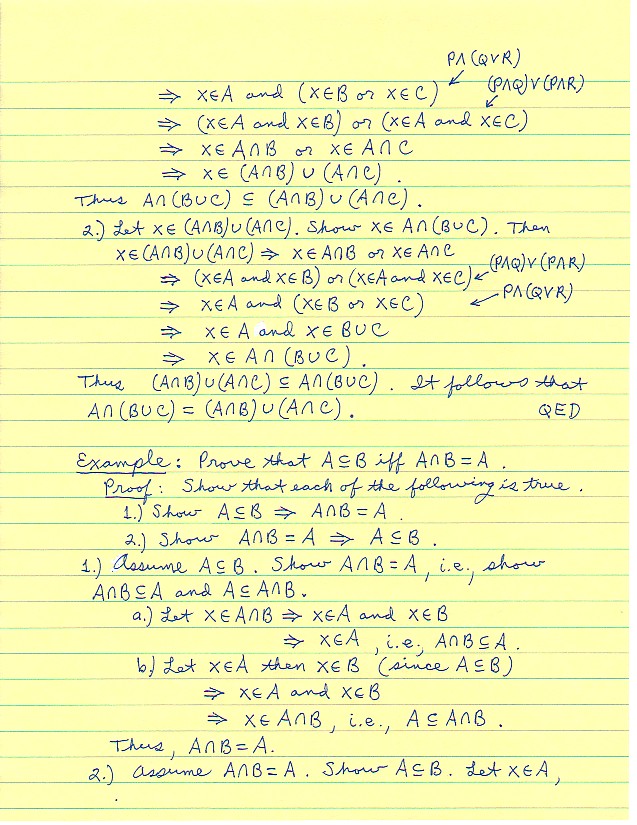 P∧(Q∨R)
⇒ x∈A and (x∈B or x∈C)
(P∧Q)∨(P∧R)
⇒ (x∈A and x∈B) or (x∈A and x∈C)
⇒ x∈A∩B or x∈A∩C
⇒ x∈ (A∩B) ∪ (A∩C) .
Thus A∩(B∪C) ⊆ (A∩B)∪(A∩C) .
2.) Let x∈(A∩B)∪(A∩C). Show x∈A∩(B∪C). Then
x∈(A∩B)∪(A∩C) ⇒ x∈A∩B or x∈A∩C
⇒ (x∈A and x∈B) or (x∈A and x∈C) (P∧Q)∨(P∧R)
⇒ x∈A and (x∈B or x∈C) P∧(Q∨R)
⇒ x∈A and x∈B∪C
⇒ x∈A∩(B∪C) .
Thus (A∩B)∪(A∩C) ⊆ A∩(B∪C) . It follows that
A∩(B∪C) = (A∩B)∪(A∩C) . QED
Example : Prove that A⊆B iff A∩B=A .
Proof : Show that each of the following is true .
1.) Show A⊆B ⇒ A∩B=A .
2.) Show A∩B=A ⇒ A⊆B .
1.) Assume A⊆B . Show A∩B=A , i.e., show
A∩B⊆A and A⊆A∩B .
a.) Let x∈A∩B ⇒ x∈A and x∈B
⇒ x∈A , i.e., A∩B⊆A .
b.) Let x∈A then x∈B (since A⊆B)
⇒ x∈A and x∈B
⇒ x∈A∩B , i.e., A⊆A∩B .
Thus , A∩B=A.
2.) Assume A∩B=A . Show A⊆B . Let x∈A ,